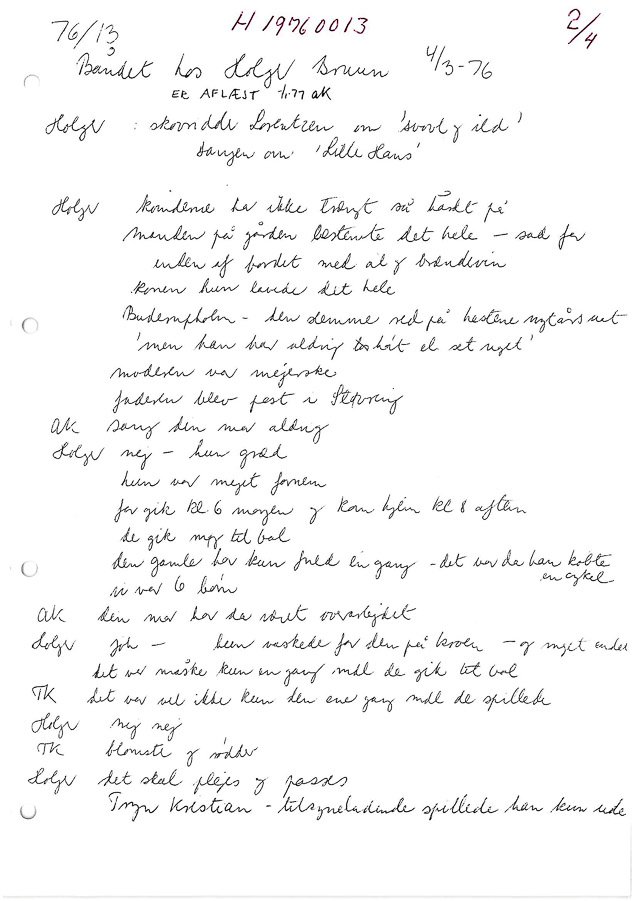 76/13 H 19760013 2/4
3
Båndet hos Holger Bruun 4/3-76
ER AFLÆST 1/1.77 AK
Holger : skovridder Lorentzen om 'svovl og ild'
sangen om 'Lille Hans'
Holger kvinderne har ikke trængt så hårdt på
manden på gården bestemte det hele – sad for
enden af bordet med øl og brændevin
konen hun lavede det hele
Buderupholm – den slemme red på hestene nytårsnat
'men han har aldrig hørt el set noget'
moderen var mejerske
faderen blev post i Støvring
AK sang den mor aldrig
Holger nej – hun græd
hun var meget fornem
far gik kl. 6 morgen og kom hjem kl 8 aften
de gik meget til bal
den gamle har kun fuld én gang – det var da han købte
en cykel
vi var 6 børn
AK den mor har da været overarbejdet
Holger joh – hun vaskede for dem på kroen – og meget andet
det var måske kun en gang mdl de gik til bal
TK det var vel ikke kun den ene gang mdl de spillede
Holger nej nej
TK blomster og rødder
Holger det skal plejes og passes
Kristian – tilsyneladende spillede han kun ude